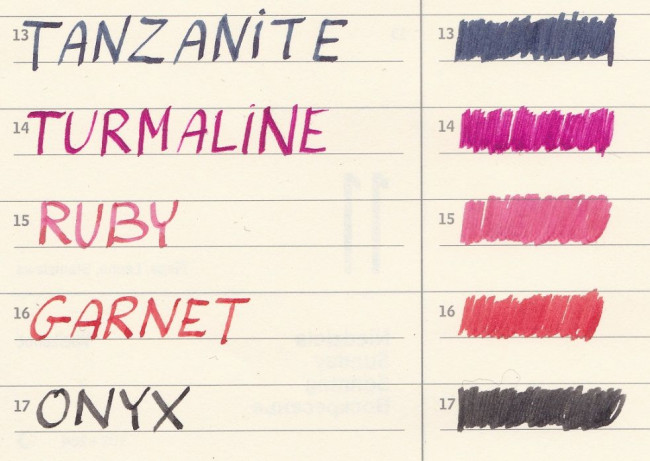 13 TANZANITE 13
14 TURMALINE 14
15 RUBY 15
16 GARNET 16
17 ONYX 17
11